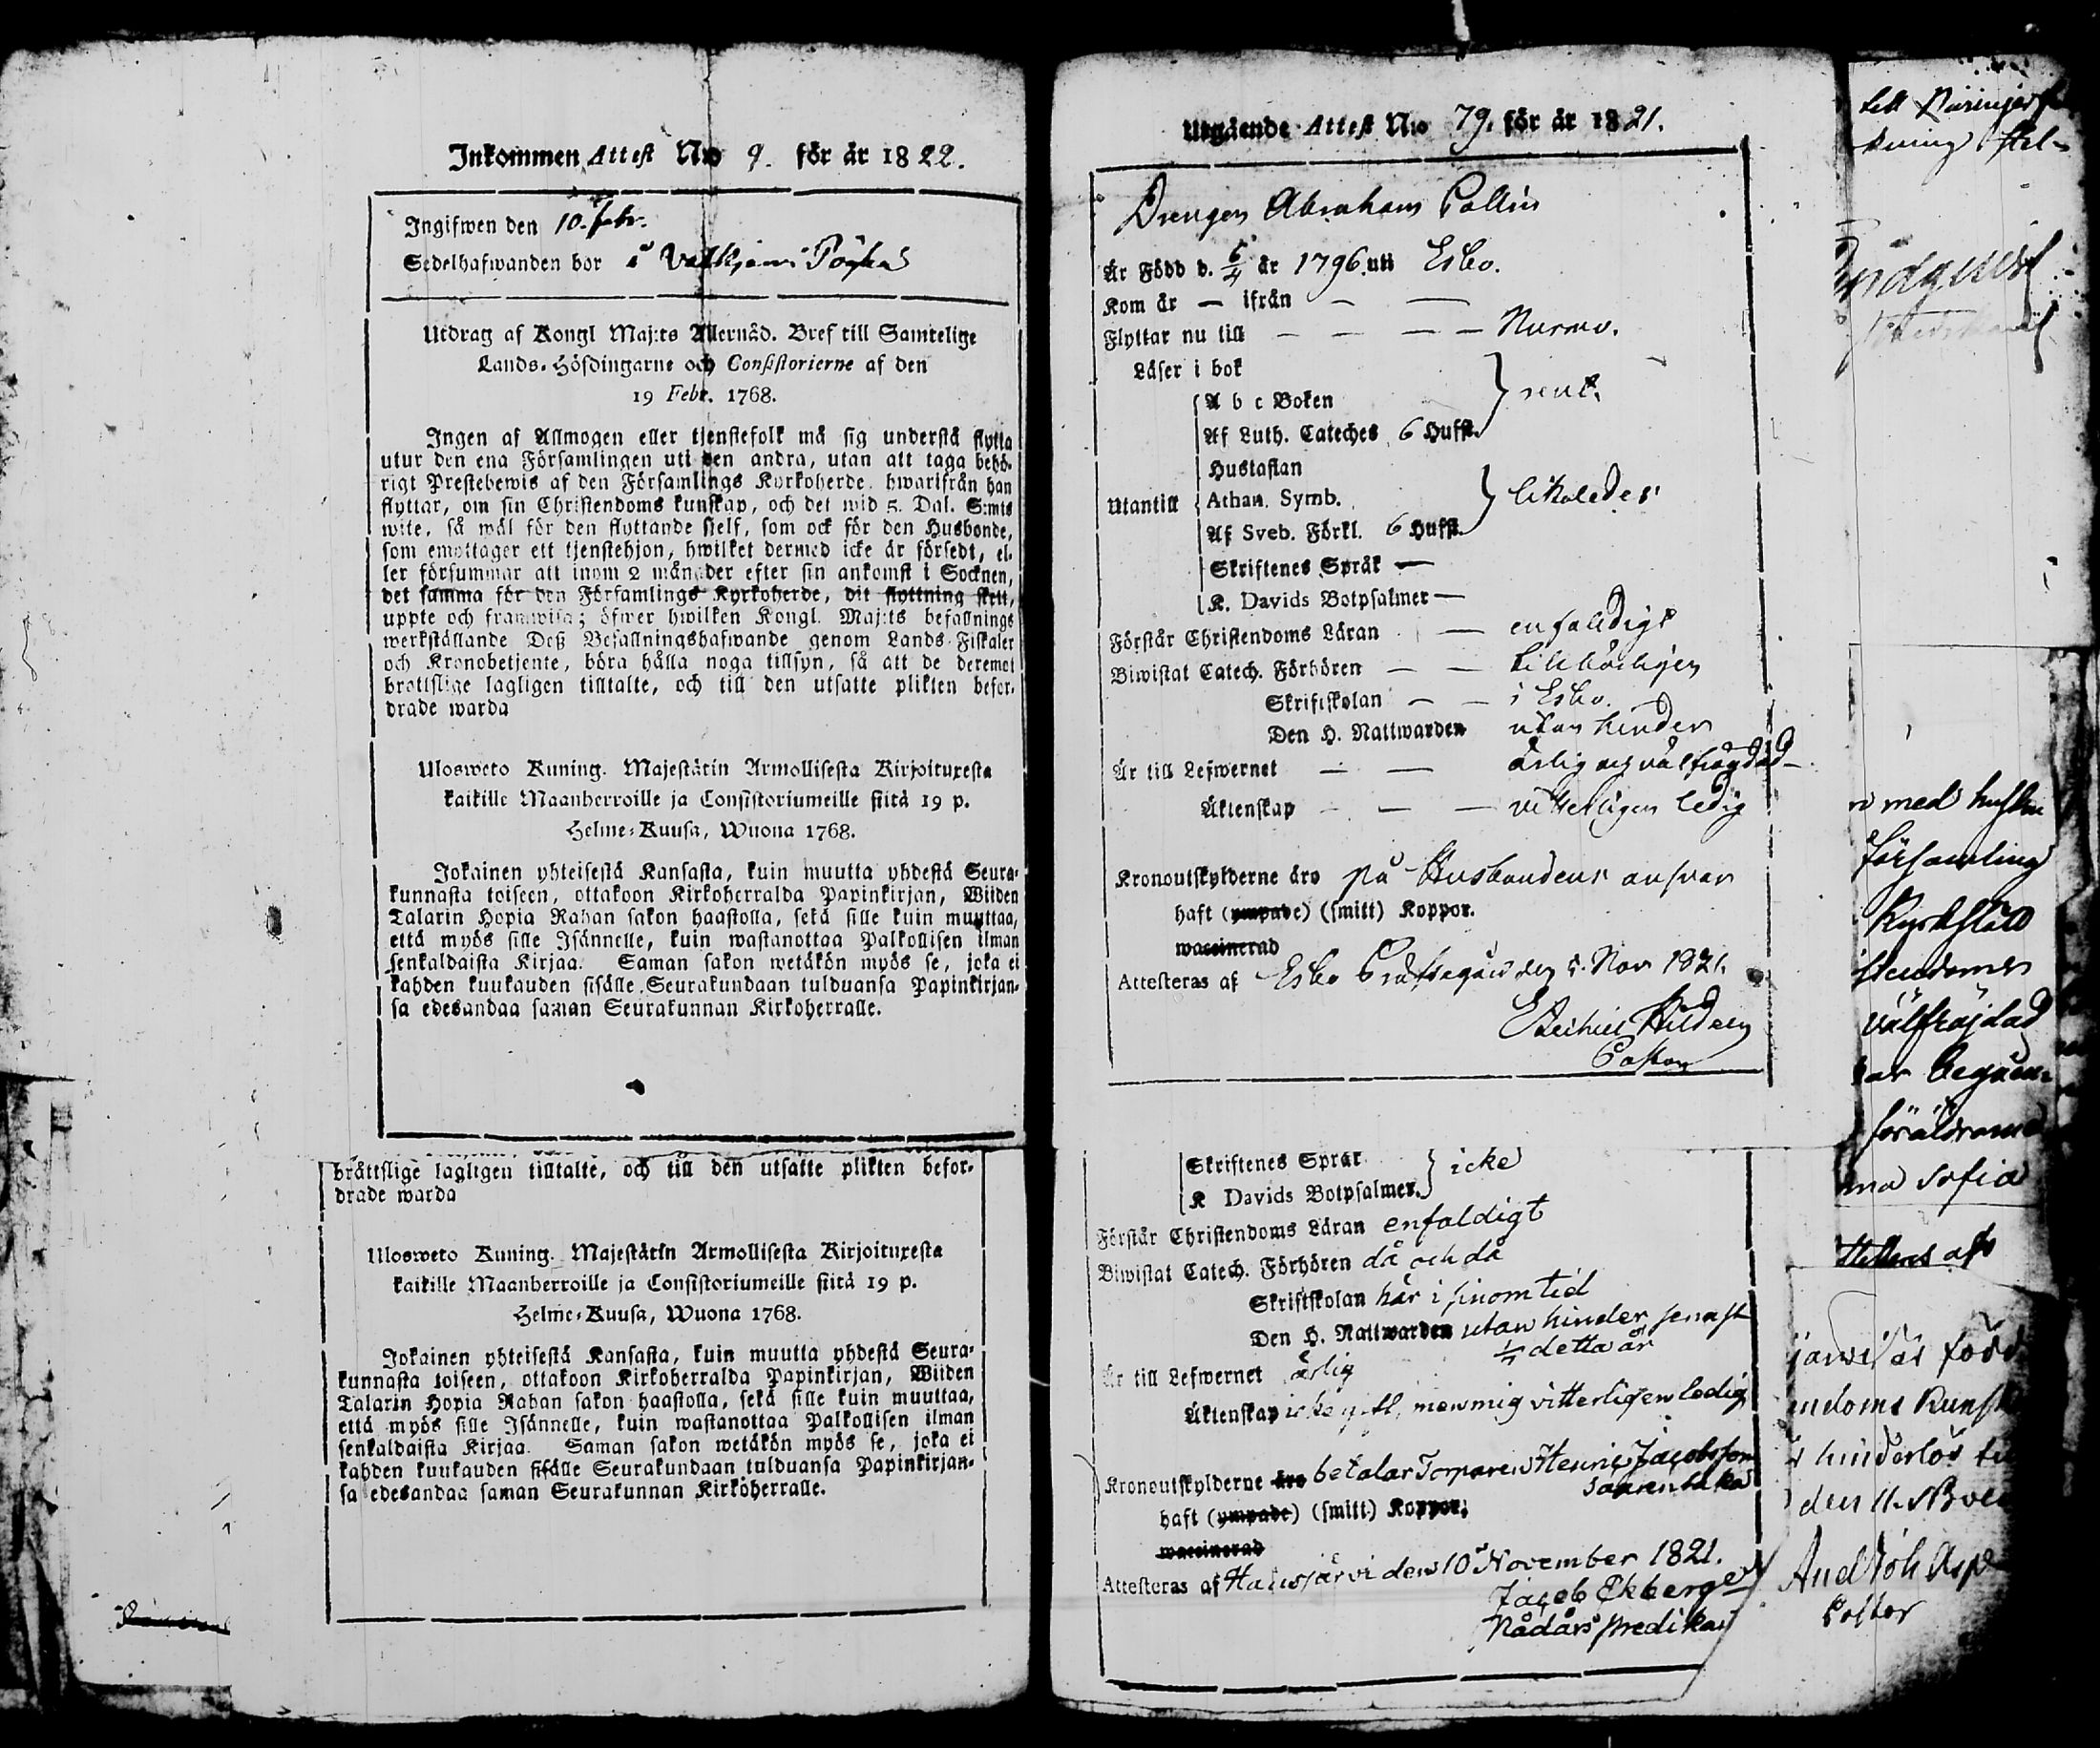 Inkommen Attest N:o 9. för år 1822.
Ingifwen den 10. febr.
Sedelhafwanden bor i Valkjervi
Utdrag af Kongl Maj:ts Allernåd. Bref till Samtelige
Lands-Höfdingarne och Consistorierne af den
19 Febr. 1768.
Ingen af Allmogen eller tjenstefolk må sig understå flytta
utur den ena Församlingen uti den andra, utan att taga behö-
rigt Prestebewis af den Församlings Kyrkoherde, hwarifrån han
flyttar, om sin Christendoms kunskap, och det wid 5. Dal. S:mts
wite, så wäl för den flyttande sielf, som ock för den Husbonde,
som emottager ett tjenstehjon, hwilket dermed icke är försedt, el-
ler försummar att inom 2 månader efter sin ankomst i Socknen,
det samma för den Församlings Kyrkoherde, dit flyttning skett,
uppte och framwisa; öfwer hwilken Kongl. Maj:ts befallnings
werkställande Deß Befallningshafwande genom Lands-Fiskaler
och Kronobetjente, böra hålla noga tillsyn, så att de deremot
brottslige lagligen tilltalte, och till den utsatte plikten befor-
drade warda
Ulosweto Kuning. Majestätin Armollisesta Kirjoituxesta
kaikille Maanherroille ja Consistoriumeille siitä 19 p.
Helme-Kuusa, Wuona 1768.
Jokainen yhteisestä Kansasta, kuin muutta yhdestä Seura-
kunnasta toiseen, ottakoon Kirkoherralda Papinkirjan, Wiiden
Talarin Hopia Rahan sakon haastolla, sekä sille kuin muuttaa,
että myös sille Isännelle, kuin wastanottaa Palkollisen ilman
senkaldaista Kirjaa. Saman sakon wetäkön myös se, joka ei
kahden kuukauden sisälle Seurakundaan tulduansa Papinkirjan-
sa edesandaa saman Seurakunnan Kirkoherralle.
brottslige lagligen tilltalte, och till den utsatte plikten befor-
drade warda
Ulosweto Kuning. Majestätin Armollisesta Kirjoituxesta
kaikille Maanherroille ja Consistoriumeille siitä 19 p.
Helme-Kuusa, Wuona 1768.
Jokainen yhteisestä Kansasta, kuin muutta yhdestä Seura-
kunnasta toiseen, ottakoon Kirkoherralda Papinkirjan, Wiiden
Talarin Hopia Rahan sakon haastolla, sekä sille kuin muuttaa,
että myös sille Isännelle, kuin wastanottaa Palkollisen ilman
senkaldaista Kirjaa. Saman sakon wetäkön myös se, joka ei
kahden kuukauden sisälle Seurakundaan tulduansa Papinkirjan-
sa edesandaa saman Seurakunnan Kirkoherralle.
Utgående Attest N:o 79. för år 1821.
Drengen Abraham Pallin
Är Född d. 6/4 år 1796. uti Esbo.
Kom år — ifrån — —
Flyttar nu till — — — — Nurmo.
Läser i bok
A b c Boken
Af Luth. Cateches 6 Hufst. } rent.
Hustaflan
Utantill Athan. Symb. } likaledes
Af Sveb. Förkl. 6 Hufst.
Skriftenes Språk —
K. Davids Botpsalmer —
Förstår Christendoms Läran — enfaldigt
Biwistat Catech. Förhören — — tillbörligen
Skriftskolan — — i Esbo.
Den H. Nattwarden utan hinder
Är till Lefwernet — — ärlig och välfrägdad
Äktenskap — — — vitterligen ledig
Kronoutskylderne äro på Husbondens ansvar
haft (ympade) (smitt) Koppor.
waccinerad
Attesteras af Esbo Prästegård den 5. Nov 1821.
Pastor
Skriftenes Språk
K Davids Botpsalmer. } icke
Förstår Christendoms Läran enfaldigt
Biwistat Catech. Förhören då och då
Skriftskolan här i sinom tid
Den H. Nattwarden utan hinder senast
detta år
Är till Lefwernet ärlig
Äktenskap icke gift, men mig vitterligen ledig
Kronoutskylderne äro betalar Torparen Henric Jacobsson
Saarenhaka
haft (ympade) (smitt) Koppor;
waccinerad
Attesteras af Hausjärvi den 10 November 1821.
Jacob Ekberg
Nådårs predikant
till
med hustru
församling
välfräjdad
föräldrarne
Sofia
Attesteras af
född
hinderlös
den 11.
And Joh Asp
Pastor